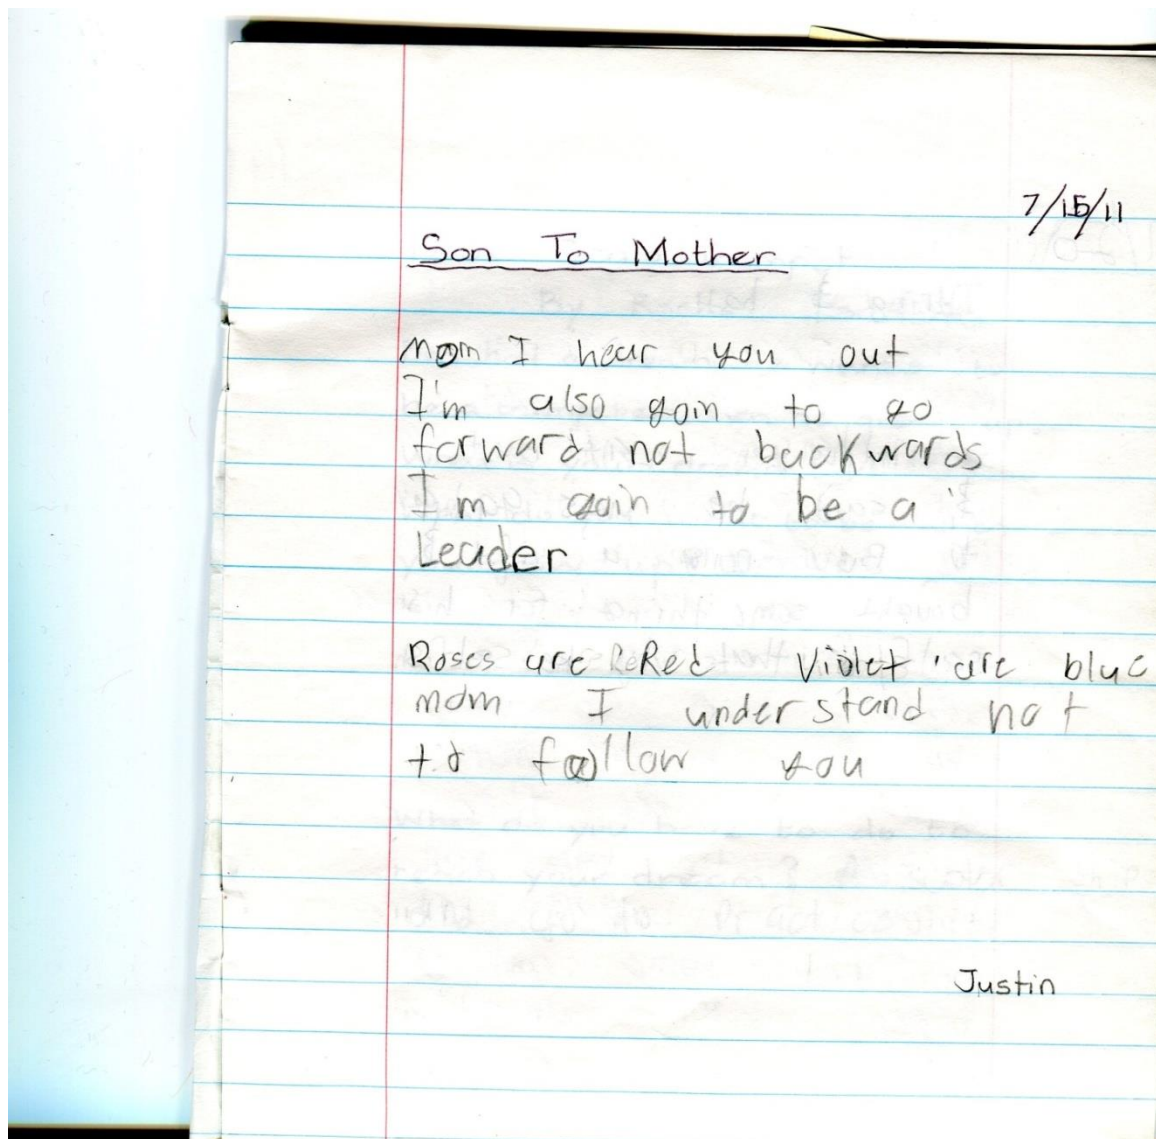 7/15/11
Son To Mother
Mom I hear you out
I'm also goin to go
forward not backwards
I'm goin to be a
Leader
Roses are ReRed Violet are blue
mom I understand not
to follow you
Justin